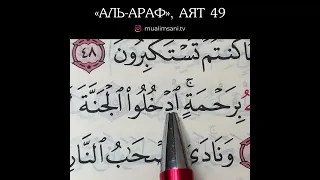 «АЛЬ-АРАФ», АЯТ 49
mualimsani.tv
كُنتُمْ تَسْتَكْبِرُونَ ٤٨
بِرَحْمَةٍ ۚ ٱدْخُلُوا۟ ٱلْجَنَّةَ
وَنَادَىٰٓ أَصْحَـٰبُ ٱلنَّارِ